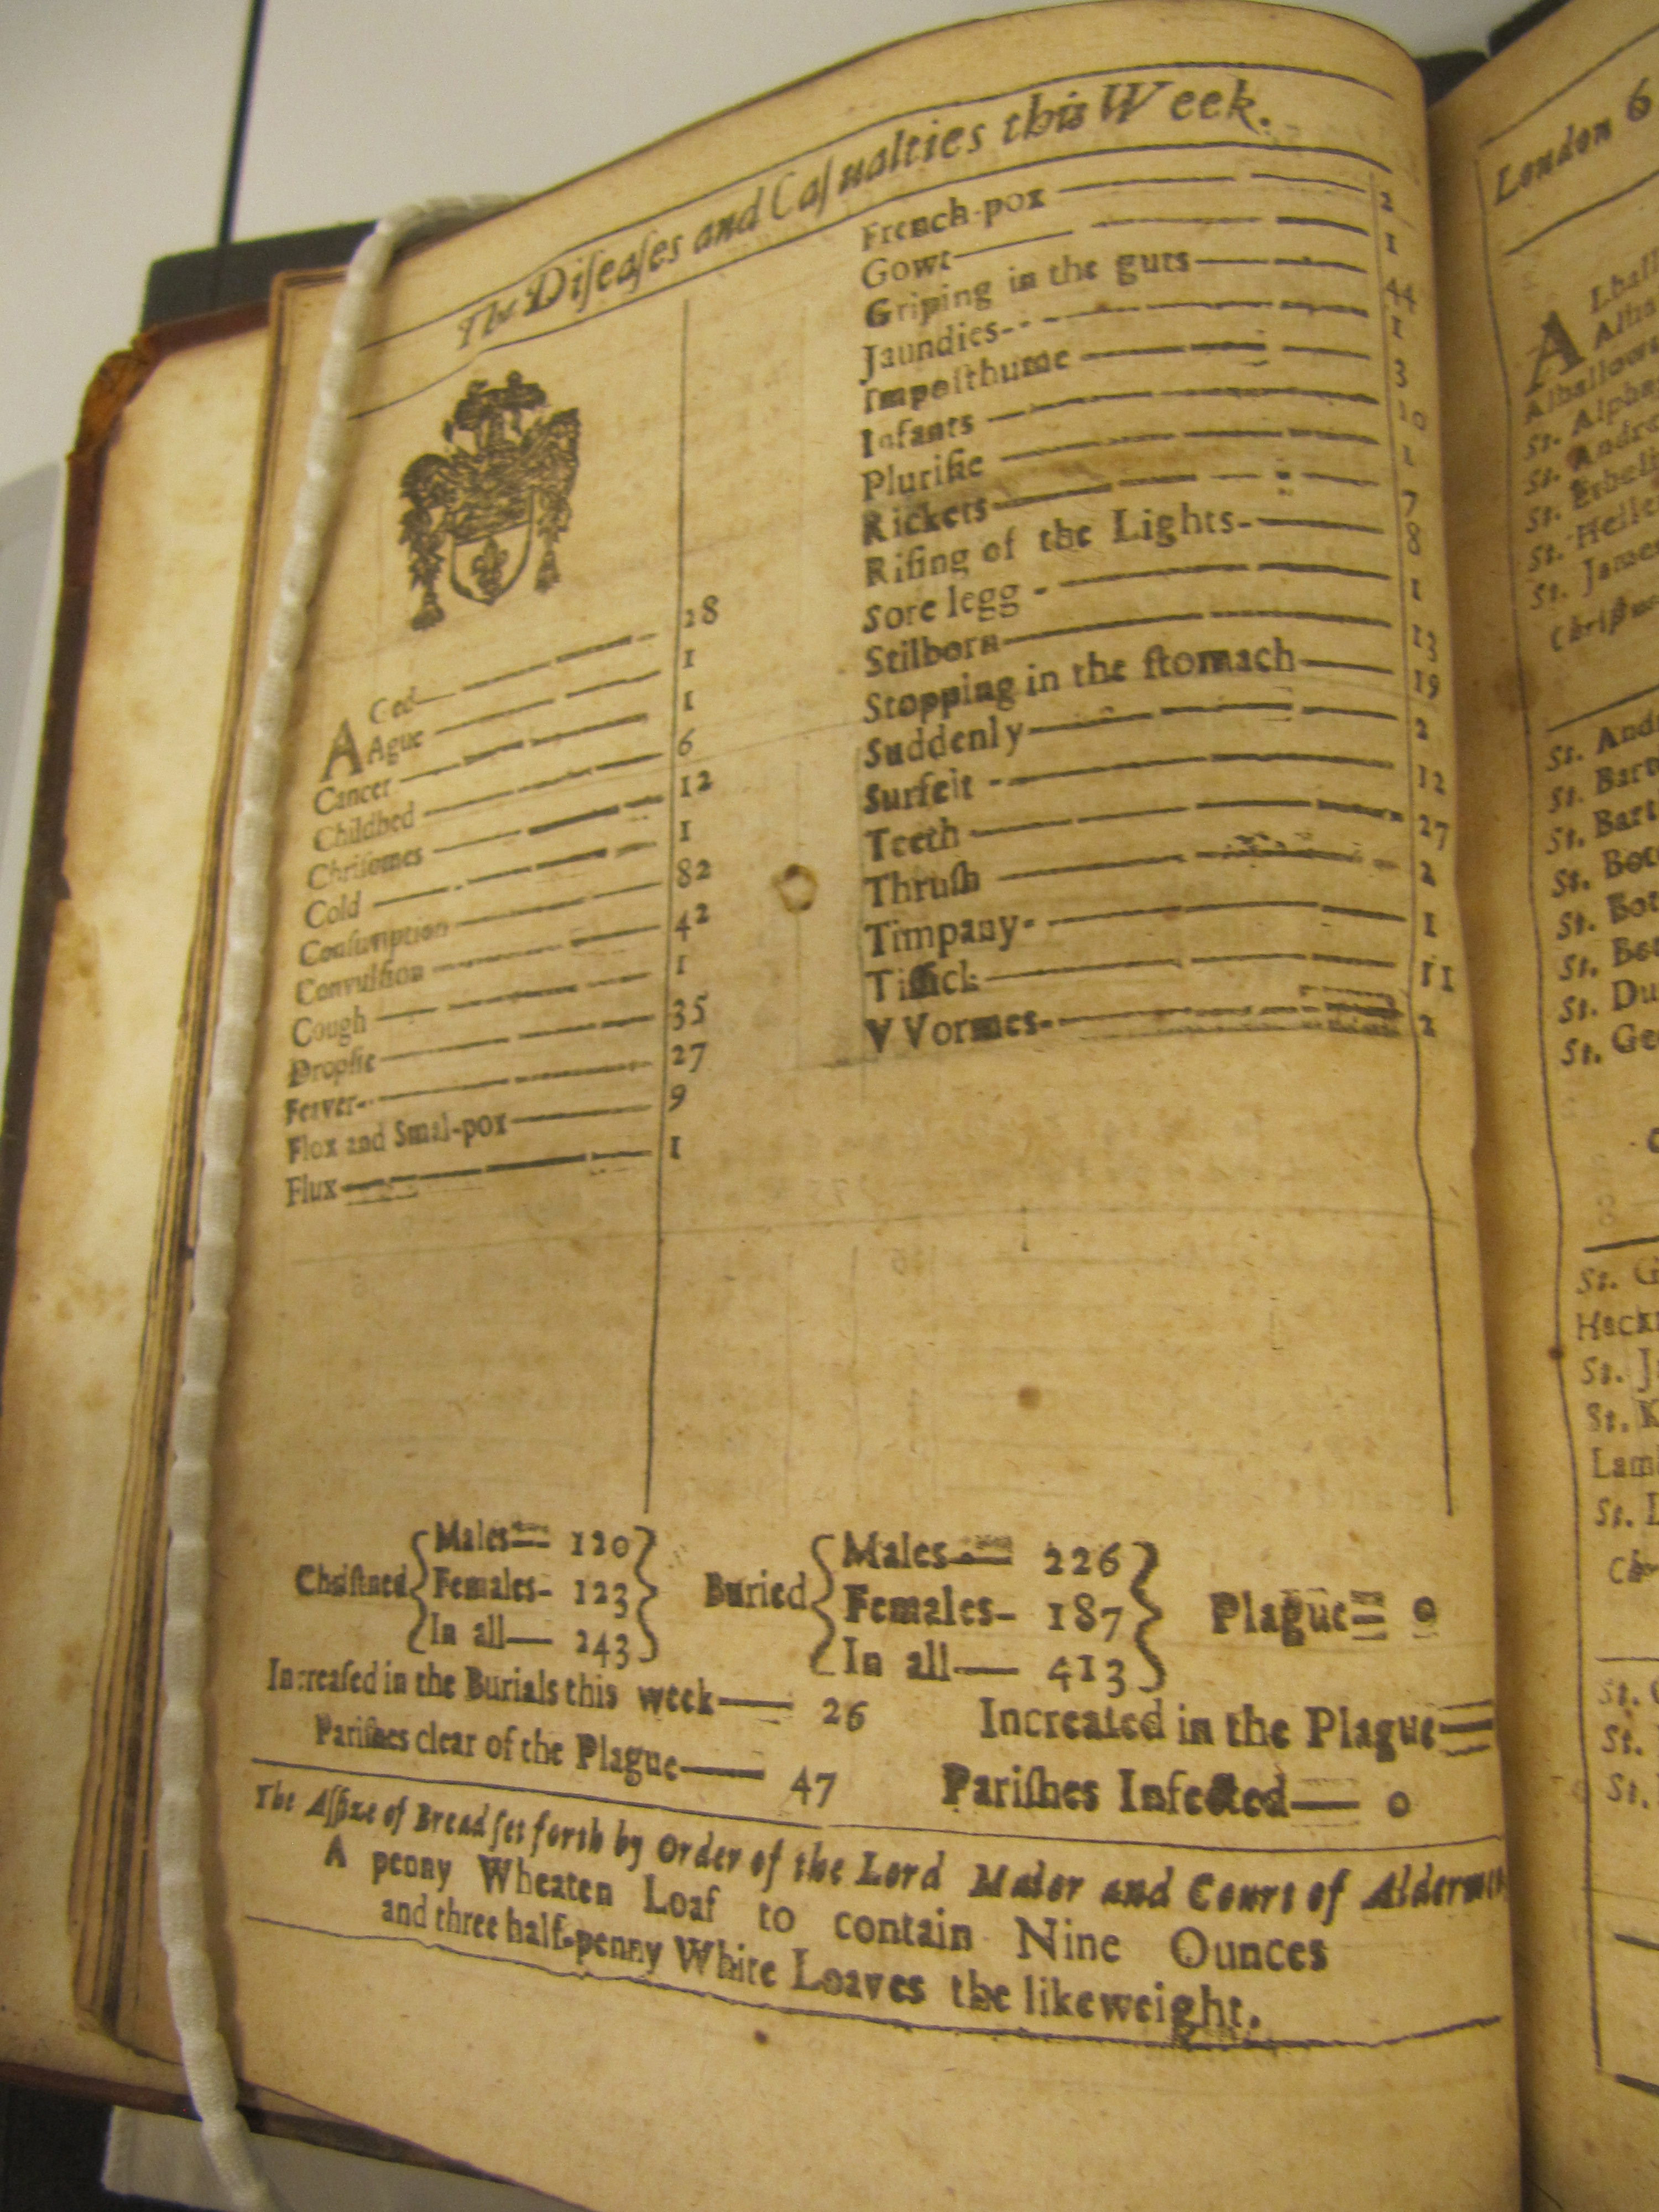 The Diſeaſes and Caſualties this Week.
AGed 28
Ague 1
Cancer 1
Childbed 6
Chriſomes 12
Cold 1
Conſumption 82
Convulſion 42
Cough 1
Dropſie 35
Feaver 27
Flox and Smal-pox 9
Flux 1
French-pox 2
Gowt 1
Griping in the guts 44
Jaundies 1
Impoſthume 3
Infants 10
Pluriſie 1
Rickets 7
Riſing of the Lights 8
Sore legg 1
Stilborn 13
Stopping in the ſtomach 19
Suddenly 2
Surfeit 12
Teeth 27
Thruſh 2
Timpany 1
Tiſſick 11
VVormes 2
Chriſtned { Males 120
Females 123
In all 243 }
Buried { Males 226
Females 187
In all 413 }
Plague 0
Increaſed in the Burials this week 26
Increaſed in the Plague
Pariſhes clear of the Plague 47
Pariſhes Infected 0
The Aſſize of Bread ſet forth by Order of the Lord Maior and Court of
A penny Wheaten Loaf to contain Nine Ounces
and three half-penny White Loaves the like weight.
London 6
St.
St. And
St. Bart
St. Bart
St. Bot
St. Bot
St. Du
St. Ge
St. G
Hack
St. J
St. K
Lam
St. L